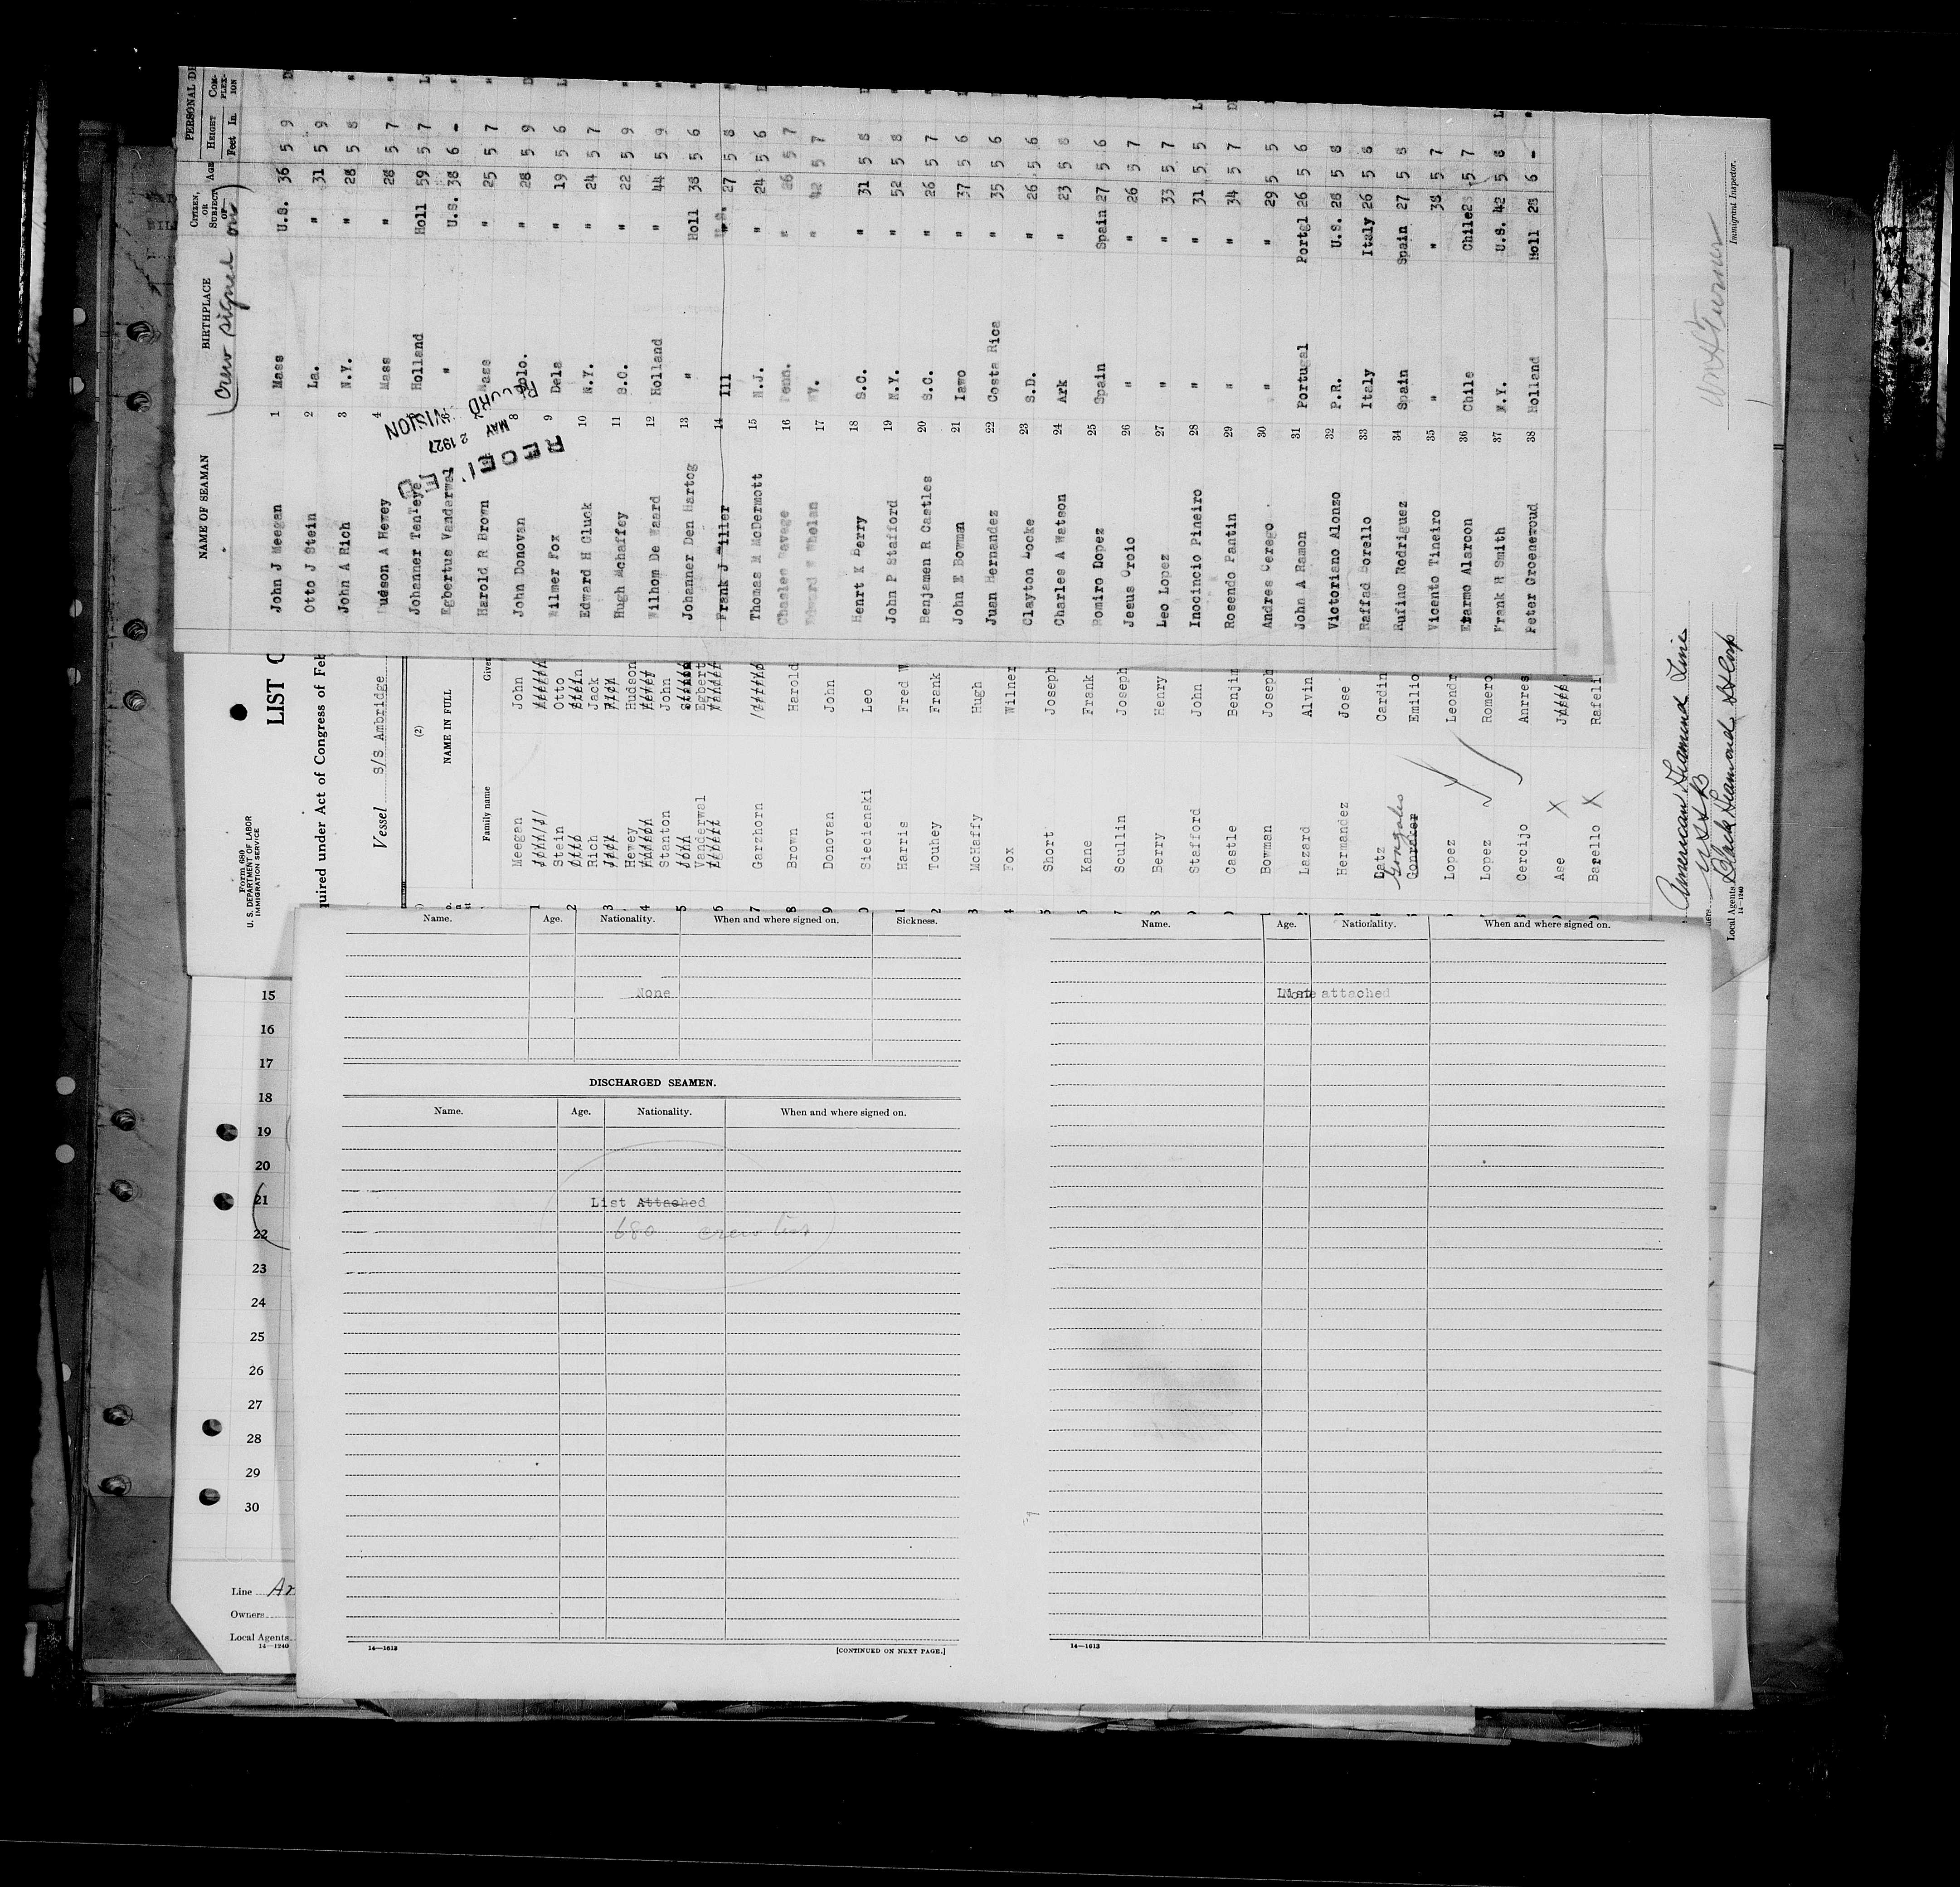 PERSONAL DE
NAME OF SEAMAN BIRTHPLACE CITIZEN, OR SUBJECT OF— Age HEIGHT Feet In. COM- PLEX- ION
Crew signed on
John J Meegan 1 Mass U.S. 36 5 9
Otto J Stein 2 La. " 31 5 9
John A Rich 3 N.Y. " 28 5 8
Hudson A Hewey 4 Mass " 28 5 7
Johanner TenTeye Holland Holl 59 5 7
Egbertus Vanderwal 6 " U.S. 38 6 -
Harold R Brown Mass " 25 5 7
John Donovan 8 Colo. " 28 5 9
Wilmer Fox 9 Dela " 19 5 6
Edward H Cluck 10 N.Y. " 24 5 7
Hugh Mchaffey 11 S.C. " 22 5 9
Wilhom De Waard 12 Holland " 44 5 9
Johanner Den Hartog 13 " Holl 38 5 6
Frank J Miller 14 Ill U.S. 27 5 8
Thomas M McDermott 15 N.J. " 24 5 6
Chaeles Savage 16 Penn. " 26 5 7
Edward W Whelan 17 NY. " 42 5 7
Henrt K Berry 18 S.C. " 31 5 8
John P Stafford 19 N.Y. " 52 5 8
Benjamen R Castles 20 S.C. " 26 5 7
John E Bowman 21 Iawo " 37 5 6
Juan Hernandez 22 Costa Rica " 35 5 6
Clayton Locke 23 S.D. " 26 5 6
Charles A Watson 24 Ark " 23 5 8
Romiro Dopez 25 Spain Spain 27 5 6
Jesus Oroio 26 " " 26 5 7
Leo Lopez 27 " " 33 5 7
Inocincio Pineiro 28 " " 31 5 5
Rosendo Pantin 29 " " 34 5 7
Andres Cerego 30 " " 29 5 5
John A Ramon 31 Portugal Portgl 26 5 6
Victoriano Alonzo 32 P.R. U.S. 28 5 8
Raffad Borello 33 Italy Italy 26 5 8
Rufino Rodriguez 34 Spain Spain 27 5 8
Vicento Tineiro 35 " " 38 5 7
Etarmo Alarcon 36 Chile Chile 28 5 7
Frank H Smith 37 N.Y. U.S. 42 5 8
Peter Groeneroud 38 Holland Holl 28 6 -
RECEIVED
MAY 2 1927
RECORD DIVISION
Form 680
U. S. DEPARTMENT OF LABOR
IMMIGRATION SERVICE
LIST
quired under Act of Congress of Feb
Vessel S/S Ambridge
(2)
NAME IN FULL
Family name Given
Meegan John
Stein Otto
Rich Jack
Hewey Hudson
Stanton John
Vanderwal Egbert
Garzhorn
Brown Harold
Donovan John
Siecienski Leo
Harris Fred W
Touhey Frank
McHaffy Hugh
Fox Wilner
Short Joseph
Kane Frank
Scullin Joseph
Berry Henry
Stafford John
Castle Benjim
Bowman Joseph
Lazard Alvin
Hermandez Jose
Datz Cardin
Gonzales Emilio
Lopez Leondr
Lopez Romero
Cercijo Anres
Ase
Barello Rafeli
American Diamond Line
U S S B
Local Agents Black Diamond SS Corp
14-1240
Immigrant Inspector.
Name. Age. Nationality. When and where signed on. Sickness.
None
DISCHARGED SEAMEN.
Name. Age. Nationality. When and where signed on.
List Attached
680 crew list
14—1613 [CONTINUED ON NEXT PAGE.]
Name. Age. Nationality. When and where signed on.
List attached
14—1613
15
16
17
18
19
20
21
22
23
24
25
26
27
28
29
30
Line Ar
Owners
Local Agents
14—1240